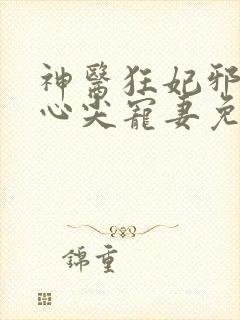 神醫狂妃邪
心尖寵妻免
錦重